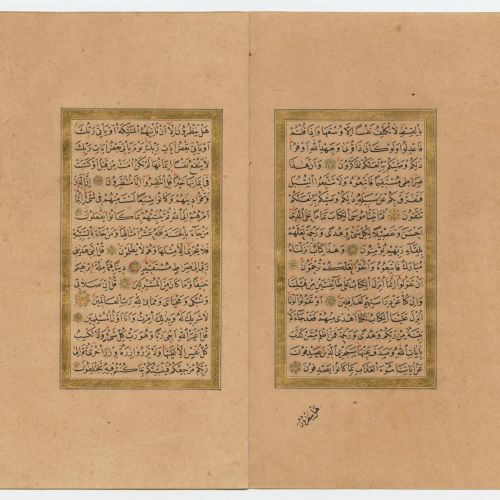 بِالْقِسْطِ لَا نُكَلِّفُ نَفْسًا اِلَّا وُسْعَهَا وَاِذَا قُلْتُمْ
فَاعْدِلُوا وَلَوْ كَانَ ذَا قُرْبٰى وَبِعَهْدِ اللّٰهِ اَوْفُوا
ذٰلِكُمْ وَصّٰيكُمْ بِهِ لَعَلَّكُمْ تَذَكَّرُونَ وَاَنَّ هٰذَا
صِرَاطِي مُسْتَقِيمًا فَاتَّبِعُوهُ وَلَا تَتَّبِعُوا السُّبُلَ
فَتَفَرَّقَ بِكُمْ عَنْ سَبِيلِهِ ذٰلِكُمْ وَصّٰيكُمْ بِهِ لَعَلَّكُمْ
تَتَّقُونَ ثُمَّ اٰتَيْنَا مُوسَى الْكِتَابَ تَمَامًا عَلَى الَّذِي
اَحْسَنَ وَتَفْصِيلًا لِكُلِّ شَيْءٍ وَهُدًى وَرَحْمَةً لَعَلَّهُمْ
بِلِقَاءِ رَبِّهِمْ يُؤْمِنُونَ وَهٰذَا كِتَابٌ اَنْزَلْنَاهُ
مُبَارَكٌ فَاتَّبِعُوهُ وَاتَّقُوا لَعَلَّكُمْ تُرْحَمُونَ
اَنْ تَقُولُوا اِنَّمَا اُنْزِلَ الْكِتَابُ عَلٰى طَائِفَتَيْنِ مِنْ قَبْلِنَا
وَاِنْ كُنَّا عَنْ دِرَاسَتِهِمْ لَغَافِلِينَ اَوْ تَقُولُوا لَوْ اَنَّا
اُنْزِلَ عَلَيْنَا الْكِتَابُ لَكُنَّا اَهْدٰى مِنْهُمْ فَقَدْ جَاءَكُمْ
بَيِّنَةٌ مِنْ رَبِّكُمْ وَهُدًى وَرَحْمَةٌ فَمَنْ اَظْلَمُ مِمَّنْ كَذَّبَ
بِاٰيَاتِ اللّٰهِ وَصَدَفَ عَنْهَا سَنَجْزِي الَّذِينَ يَصْدِفُونَ
عَنْ اٰيَاتِنَا سُوءَ الْعَذَابِ بِمَا كَانُوا يَصْدِفُونَ
هل ينظرون
هَلْ يَنْظُرُونَ اِلَّا اَنْ تَأْتِيَهُمُ الْمَلٰئِكَةُ اَوْ يَأْتِيَ رَبُّكَ
اَوْ يَأْتِيَ بَعْضُ اٰيَاتِ رَبِّكَ يَوْمَ يَأْتِي بَعْضُ اٰيَاتِ رَبِّكَ
لَا يَنْفَعُ نَفْسًا اِيمَانُهَا لَمْ تَكُنْ اٰمَنَتْ مِنْ قَبْلُ اَوْ كَسَبَتْ
فِي اِيمَانِهَا خَيْرًا قُلِ انْتَظِرُوا اِنَّا مُنْتَظِرُونَ اِنَّ الَّذِينَ
فَرَّقُوا دِينَهُمْ وَكَانُوا شِيَعًا لَسْتَ مِنْهُمْ فِي شَيْءٍ اِنَّمَا
اَمْرُهُمْ اِلَى اللّٰهِ ثُمَّ يُنَبِّئُهُمْ بِمَا كَانُوا يَفْعَلُونَ
مَنْ جَاءَ بِالْحَسَنَةِ فَلَهُ عَشْرُ اَمْثَالِهَا وَمَنْ جَاءَ بِالسَّيِّئَةِ
فَلَا يُجْزٰى اِلَّا مِثْلَهَا وَهُمْ لَا يُظْلَمُونَ قُلْ اِنَّنِي هَدٰينِي
رَبِّي اِلٰى صِرَاطٍ مُسْتَقِيمٍ دِينًا قِيَمًا مِلَّةَ اِبْرٰهِيمَ
حَنِيفًا وَمَا كَانَ مِنَ الْمُشْرِكِينَ قُلْ اِنَّ صَلَاتِي
وَنُسُكِي وَمَحْيَايَ وَمَمَاتِي لِلّٰهِ رَبِّ الْعَالَمِينَ
لَا شَرِيكَ لَهُ وَبِذٰلِكَ اُمِرْتُ وَاَنَا اَوَّلُ الْمُسْلِمِينَ
قُلْ اَغَيْرَ اللّٰهِ اَبْغِي رَبًّا وَهُوَ رَبُّ كُلِّ شَيْءٍ وَلَا تَكْسِبُ
كُلُّ نَفْسٍ اِلَّا عَلَيْهَا وَلَا تَزِرُ وَازِرَةٌ وِزْرَ اُخْرٰى ثُمَّ اِلٰى
رَبِّكُمْ مَرْجِعُكُمْ فَيُنَبِّئُكُمْ بِمَا كُنْتُمْ فِيهِ تَخْتَلِفُونَ